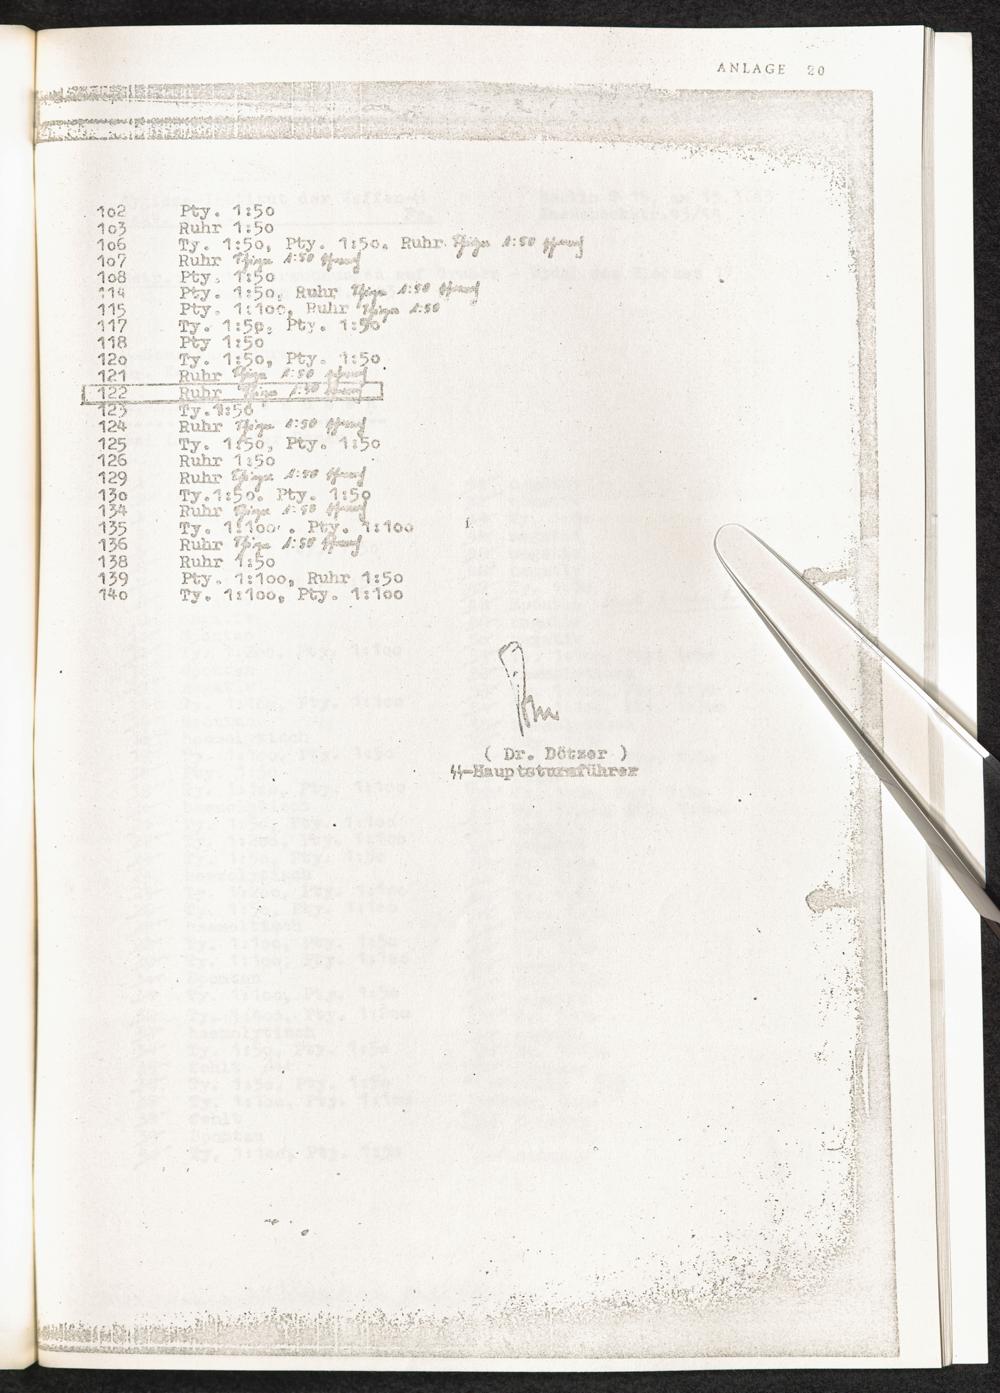 ANLAGE 20
102 Pty. 1:50
103 Ruhr 1:50
106 Ty. 1:50, Pty. 1:50. Ruhr Shiga 1:50 schwach
107 Ruhr Shiga 1:50 schwach
108 Pty. 1:50
114 Pty. 1:50, Ruhr Shiga 1:50 schwach
115 Pty. 1:100, Ruhr Shiga 1:50
117 Ty. 1:50, Pty. 1:50
118 Pty 1:50
120 Ty. 1:50, Pty. 1:50
121 Ruhr Shiga 1:50 schwach
122 Ruhr Shiga 1:50 schwach
123 Ty.1:50
124 Ruhr Shiga 1:50 schwach
125 Ty. 1:50, Pty. 1:50
126 Ruhr 1:50
129 Ruhr Shiga 1:50 schwach
130 Ty.1:50. Pty. 1:50
134 Ruhr Shiga 1:50 schwach
135 Ty. 1:100. Pty. 1:100
136 Ruhr Shiga 1:50 schwach
138 Ruhr 1:50
139 Pty. 1:100, Ruhr 1:50
140 Ty. 1:100, Pty. 1:100
( Dr. Dötzer )
SS-Hauptsturmführer